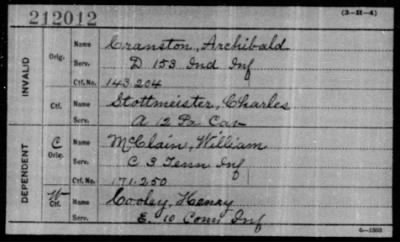 212012 (3-H-4)
INVALID Orig. Name Cranston, Archibald
Serv. D 153 Ind Inf
Ctf. No. 143.204
Ctf. Name Stottmeister, Charles
Serv. A 12 Pa Cav
DEPENDENT C Orig. Name McClain, William
Serv. C 3 Tenn Inf
Ctf. No. 171.250
Ctf. Name Cooley, Henry
Serv. E. 10 Conn Inf
6-1503